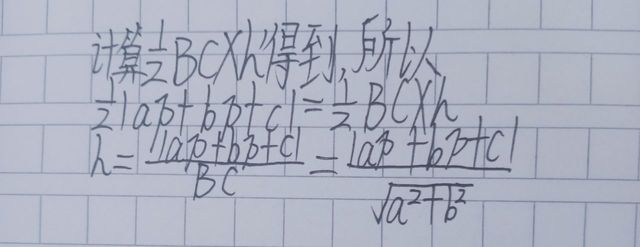 计算½BC×h得到,所以
½|ap+bp+c|=½BC×h
h=|ap+bp+c|/BC=|ap+bp+c|/√(a²+b²)